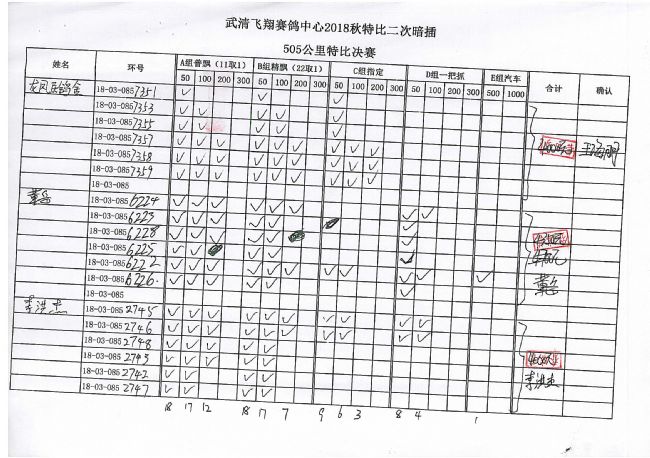 武清飞翔赛鸽中心2018秋特比二次暗插
505公里特比决赛
姓名 环号 A组普飘（11取1） B组精飘（22取1） C组指定 D组一把抓 E组汽车 合计 确认
50 100 200 300 50 100 200 300 50 100 200 300 50 100 200 300 500 1000
18-03-0857351
18-03-0857353
18-03-0857355
18-03-0857357
18-03-0857358
18-03-0857359
18-03-085
18-03-0856224
18-03-0856223
18-03-0856228
18-03-0856225
18-03-0856222
18-03-0856226
18-03-085
李洪杰 18-03-0852745
18-03-0852746
18-03-0852748
18-03-0852743
18-03-0852742
18-03-0852747
李洪杰
18 17 12 18 17 7 9 6 3 8 4 1